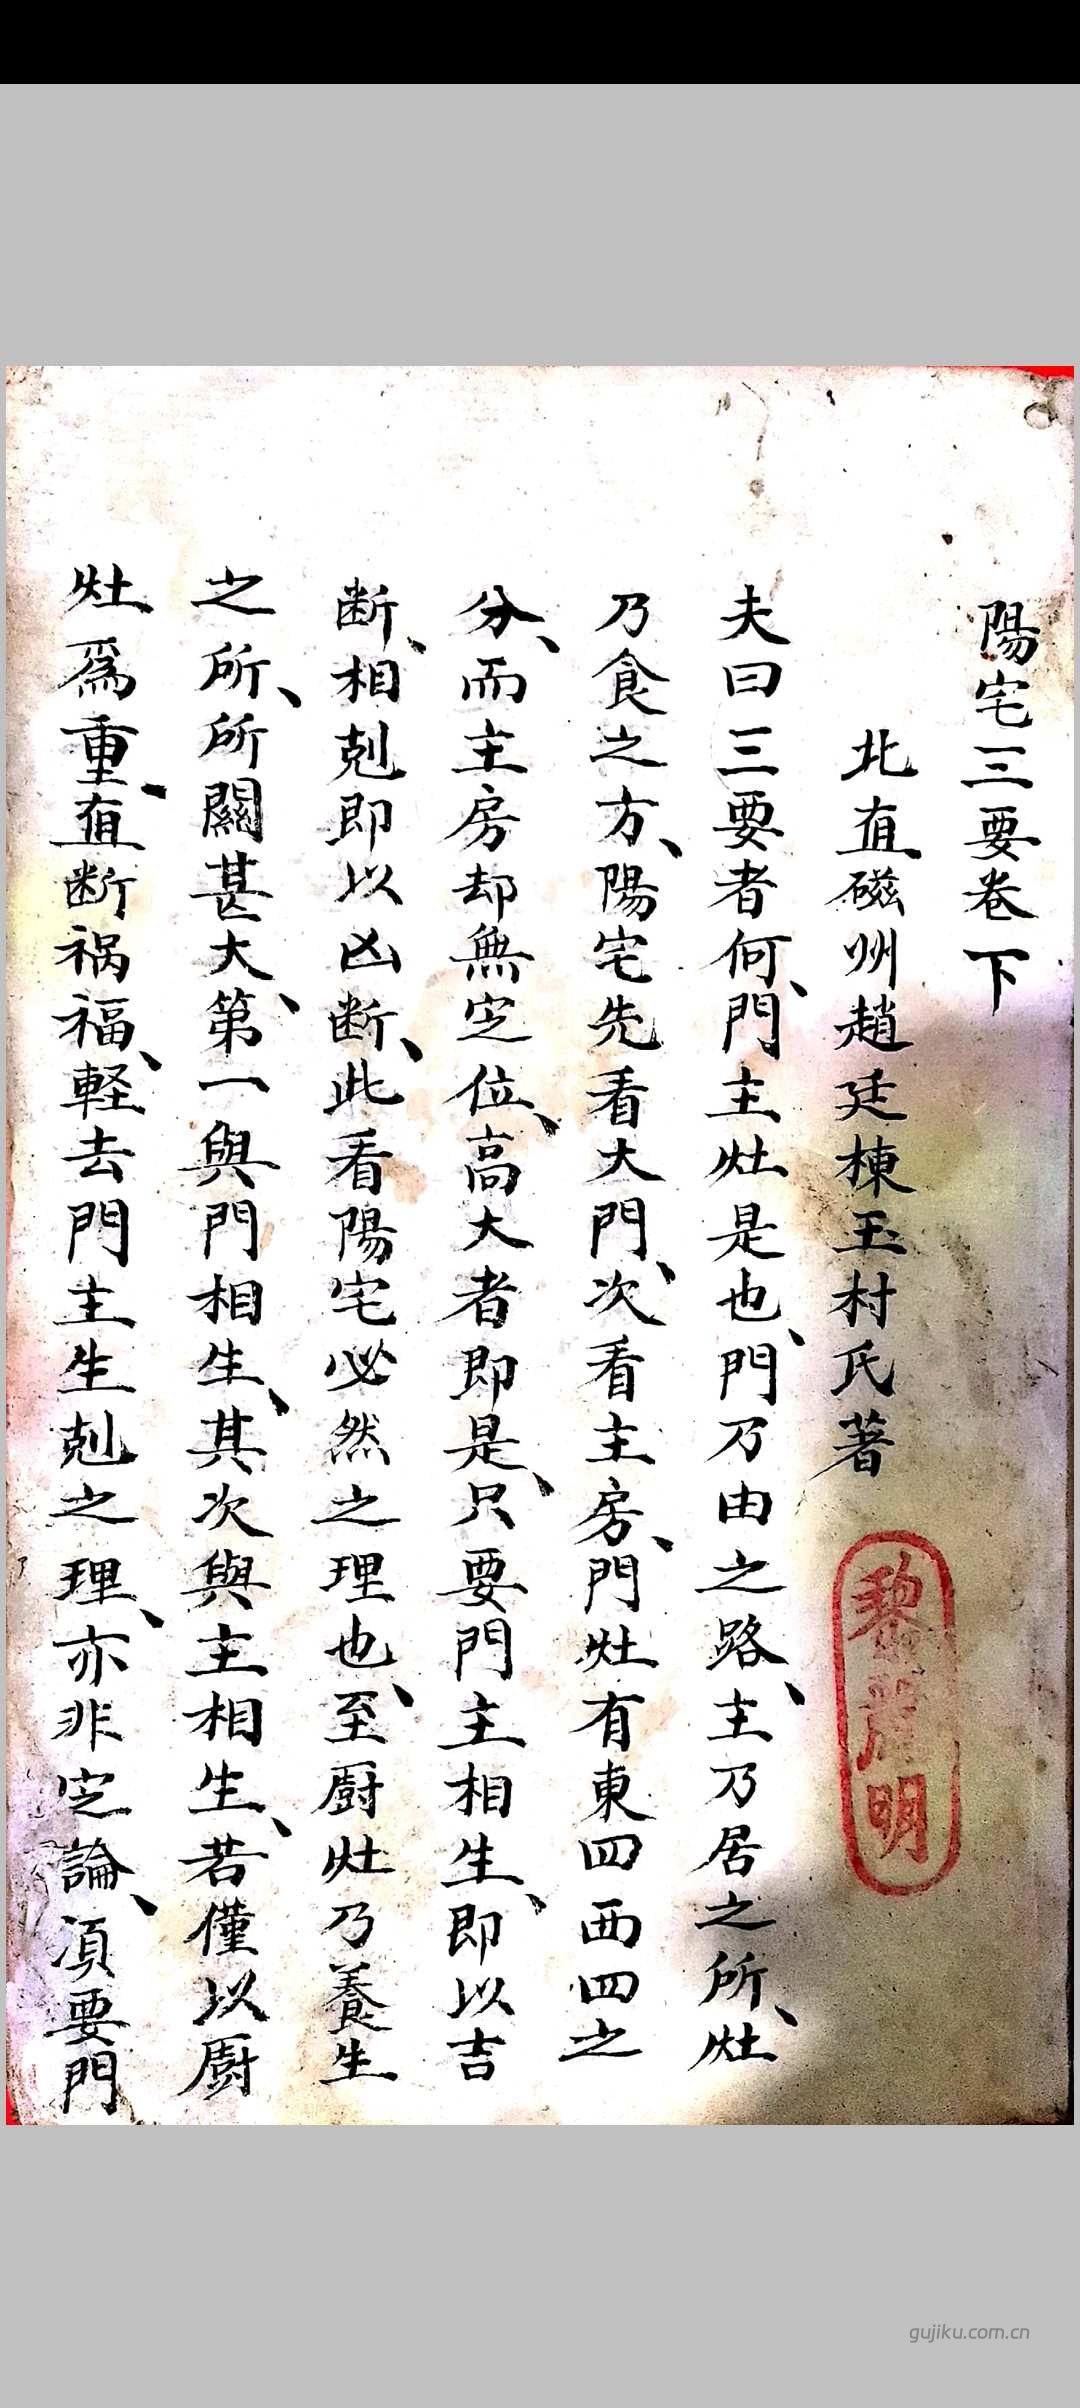 陽宅三要卷下
北直磁州趙廷棟玉村氏著
夫曰三要者何、門主灶是也、門乃由之路、主乃居之所、灶
乃食之方、陽宅先看大門、次看主房、門灶有東四西四之
分、而主房却無定位、高大者即是、只要門主相生、即以吉
断、相剋即以凶断、此看陽宅必然之理也、至厨灶乃養生
之所、所關甚大、第一與門相生、其次與主相生、若僅以厨
灶爲重、直断祸福、軽去門主生剋之理、亦非定論、須要門
黎 明
gujiku.com.cn